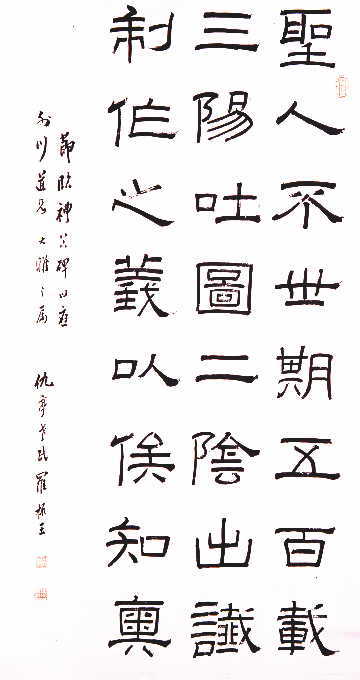 聖人不世期五百載
三陽吐圖二陰出讖
制作之義以俟知奧
節臨禮器碑以應
川道兄大雅之屬 仇亭老民羅振玉